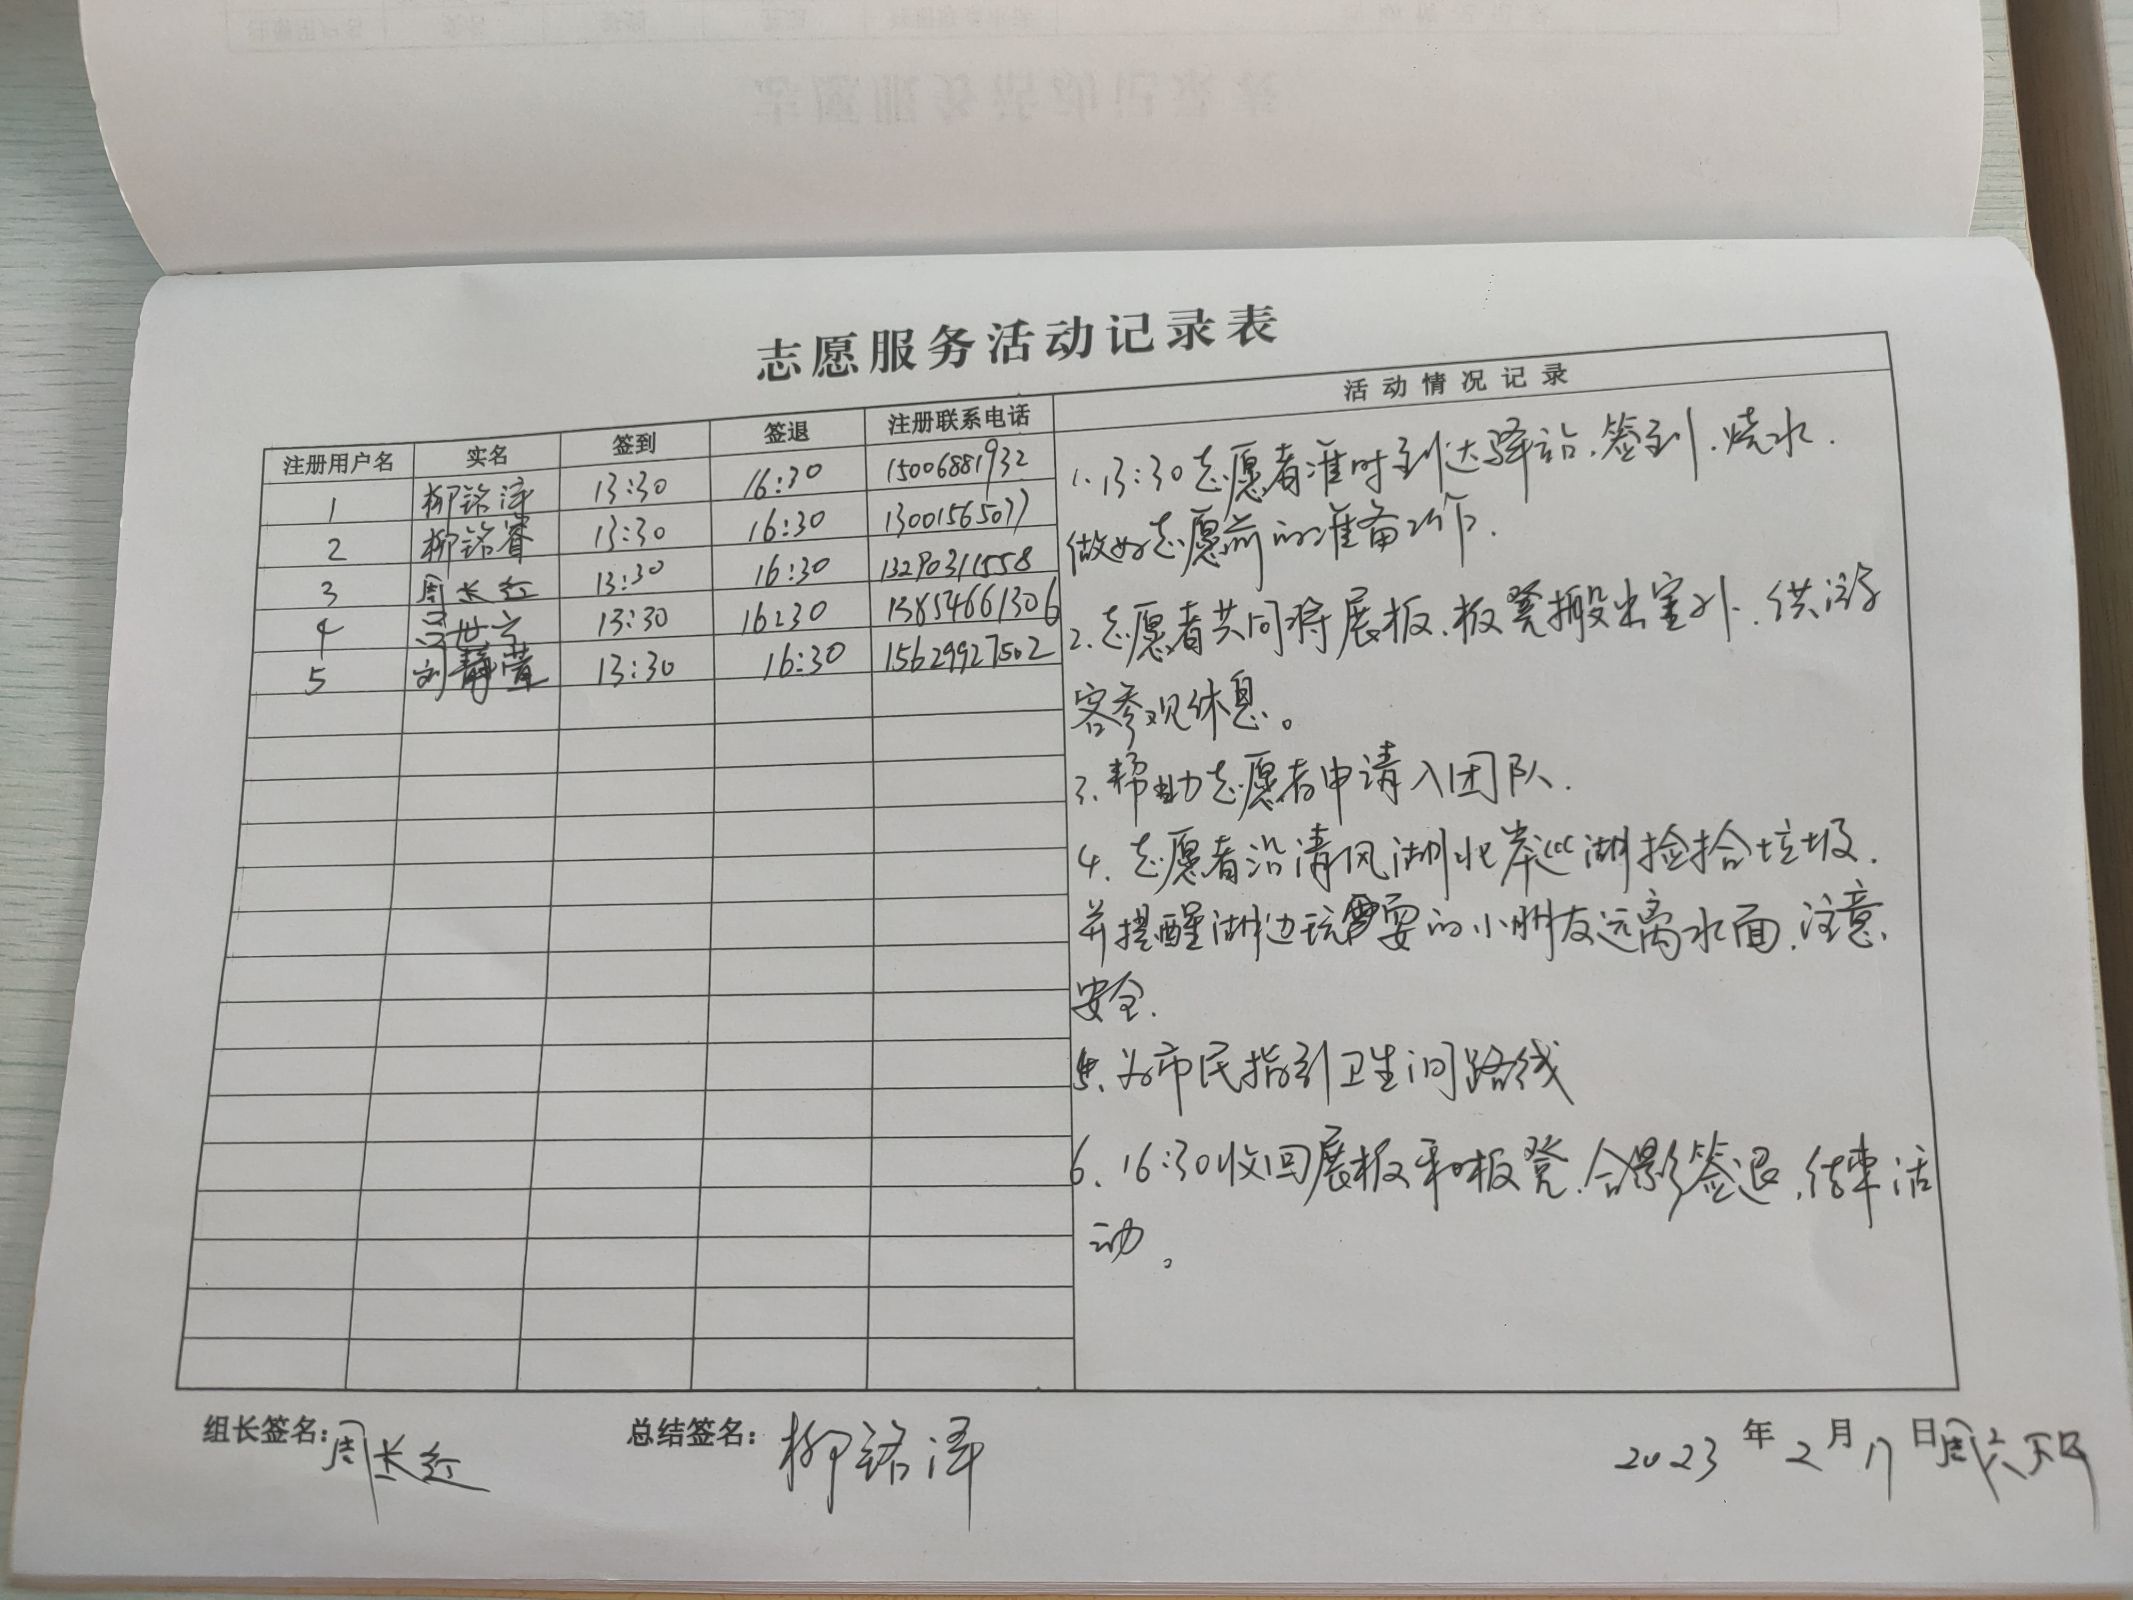 志愿服务活动记录表
注册用户名 实名 签到 签退 注册联系电话 活动情况记录
1 柳铭泽 13:30 16:30 15006881932
2 柳铭睿 13:30 16:30 13001565077
3 周长红 13:30 16:30 13290311558
4 13:30 16:30 13854661306
5 刘静萱 13:30 16:30 15629927502
1.13:30志愿者准时到达驿站、签到、烧水.
做好志愿前的准备工作.
2.志愿者共同将展板、板凳搬出室外.供游
客参观休息。
3.帮助志愿者申请入团队.
4.志愿者沿清风湖北岸巡湖捡拾垃圾.
并提醒湖边玩耍的小朋友远离水面.注意
安全.
5.为市民指引卫生间路线
6.16:30收回展板和板凳.合影签退.结束活
动。
组长签名:周长红 总结签名:柳铭泽 2023年2月17日周六下午